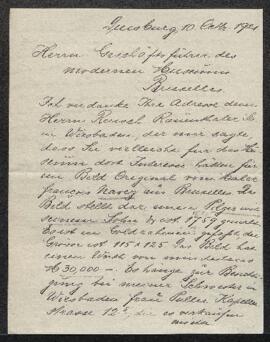 Duisburg 10 Octb. 1921
Herrn Geschäftsführer des
modernen Museums
Bruxelles.
Ich verdanke Ihre Adresse dem
Herrn
in Wiesbaden, der mir sagte
dass Sie vielleicht für das Mu-
seum dort Interesse hätten für
ein Bild Original vom Maler
françois Navez aus Bruxelles. Das
Bild stellt dar
seinem Sohn & ist 1759 gemalt.
Es ist in Goldrahmen gefasst die
Grösse ist 115 x 125 Das Bild hat
einen Wert von mindestens
M 30,000 —. Es hänge zur Besich-
tigung bei meiner Schwester in
Wiesbaden frau Kapellen
Strasse 12 die es verkaufen